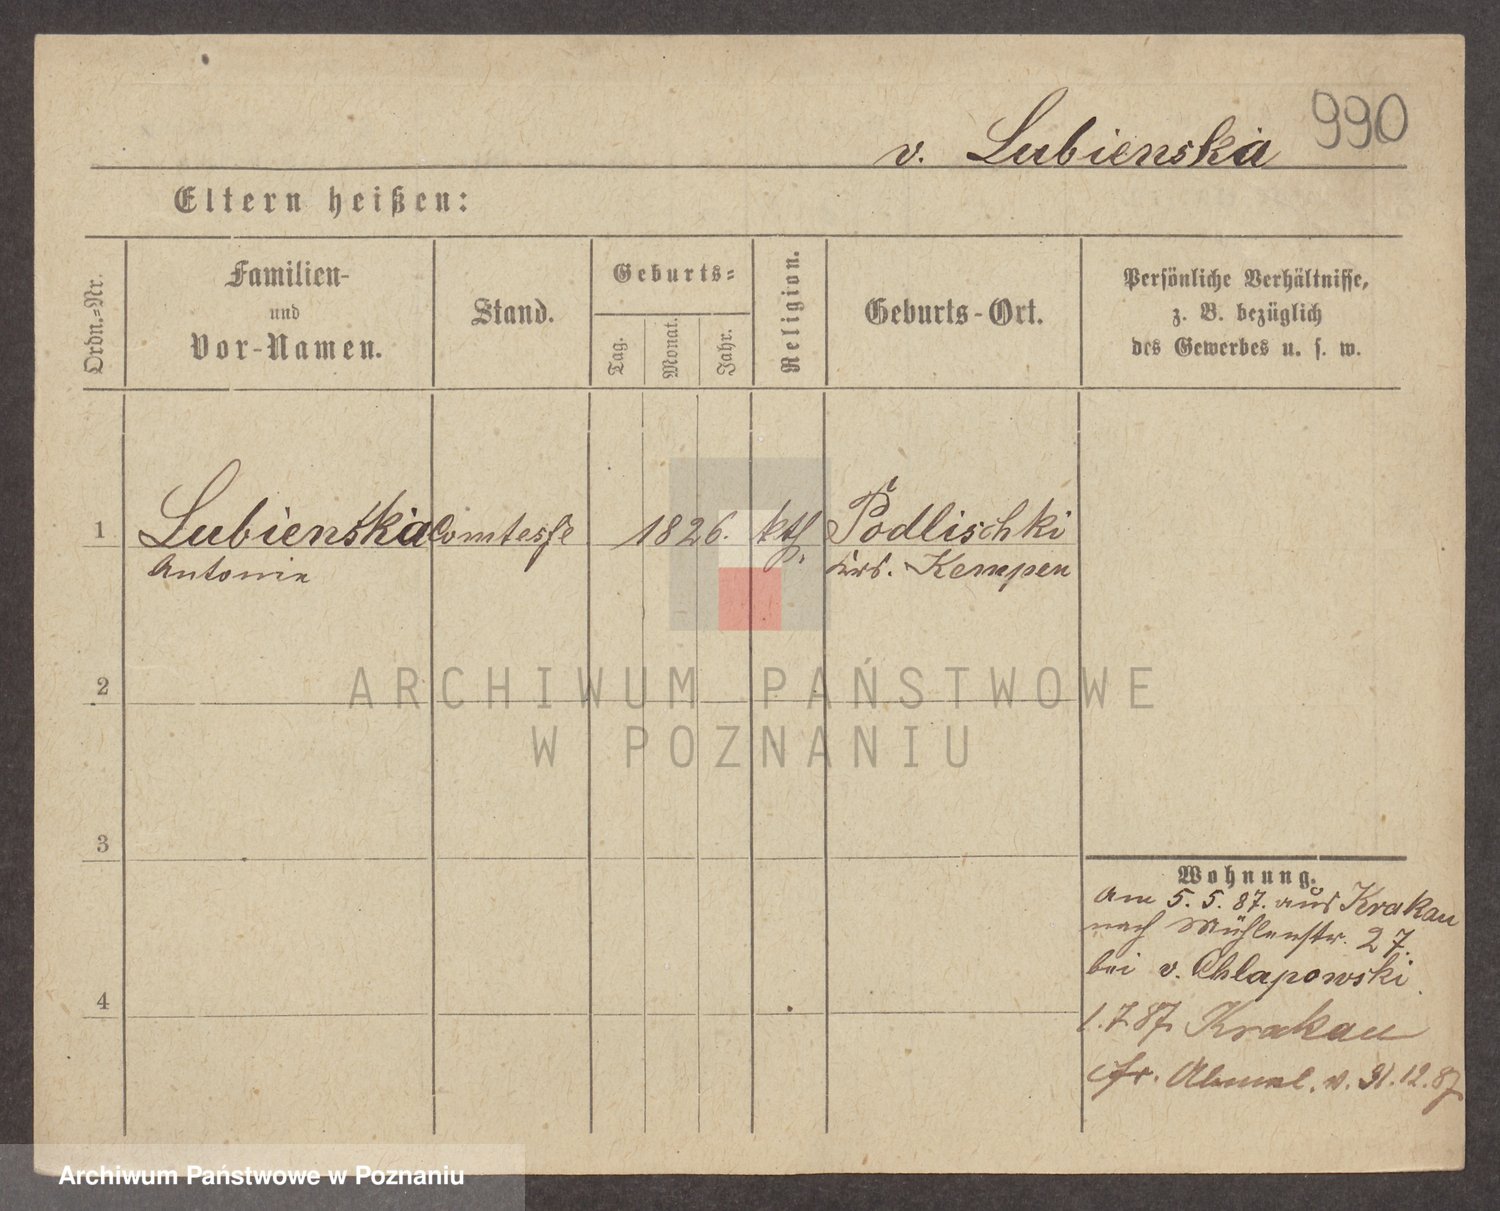 990
v. Lubienska
Eltern heißen:
Ordn.=Nr.
Familien-
und
Vor-Namen.
Stand.
Geburts=
Tag.
Monat.
Jahr.
Religion.
Geburts-Ort.
Persönliche Verhältnisse,
z. B. bezüglich
des Gewerbes u. s. w.
1 Lubienska Comtesse 1826. kth. Podlischki
Antonie Krs. Kempen
2
ARCHIWUM PAŃSTWOWE
W POZNANIU
3
Wohnung.
Am 5. 5. 87. aus Krakau
nach Mühlenstr. 27.
bei v. Chlapowski
4
1.7.87. Krakau
fr. v. 31.12.87
Archiwum Państwowe w Poznaniu